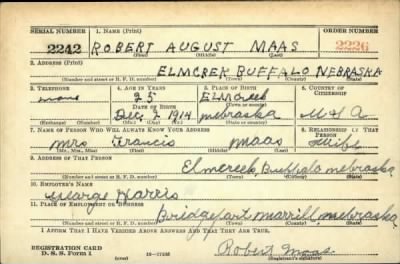 SERIAL NUMBER 1. NAME (Print) ORDER NUMBER
2242 ROBERT AUGUST MAAS 2226
(First) (Middle) (Last)
2. ADDRESS (Print)
ELMCREK BUFFALO NEBRASKA
(Number and street or R. F. D. number) (Town) (County) (State)
3. TELEPHONE 4. AGE IN YEARS 5. PLACE OF BIRTH 6. COUNTRY OF CITIZENSHIP
none 25 Elmcreek
DATE OF BIRTH (Town or county)
Dec 2 1914 nebraska U S A
(Exchange) (Number) (Mo.) (Day) (Yr.) (State or country)
7. NAME OF PERSON WHO WILL ALWAYS KNOW YOUR ADDRESS 8. RELATIONSHIP OF THAT PERSON
Mrs Francis Maas Wife
(Mr., Mrs., Miss) (First) (Middle) (Last)
9. ADDRESS OF THAT PERSON
Elmcreek Buffalo nebraska
(Number and street or R. F. D. number) (Town) (County) (State)
10. EMPLOYER'S NAME
George Harris
11. PLACE OF EMPLOYMENT OR BUSINESS
Bridgeport Morrill nebraska
(Number and street or R. F. D. number) (Town) (County) (State)
I AFFIRM THAT I HAVE VERIFIED ABOVE ANSWERS AND THAT THEY ARE TRUE.
REGISTRATION CARD Robert Maas
D. S. S. Form 1 (Registrant's signature)